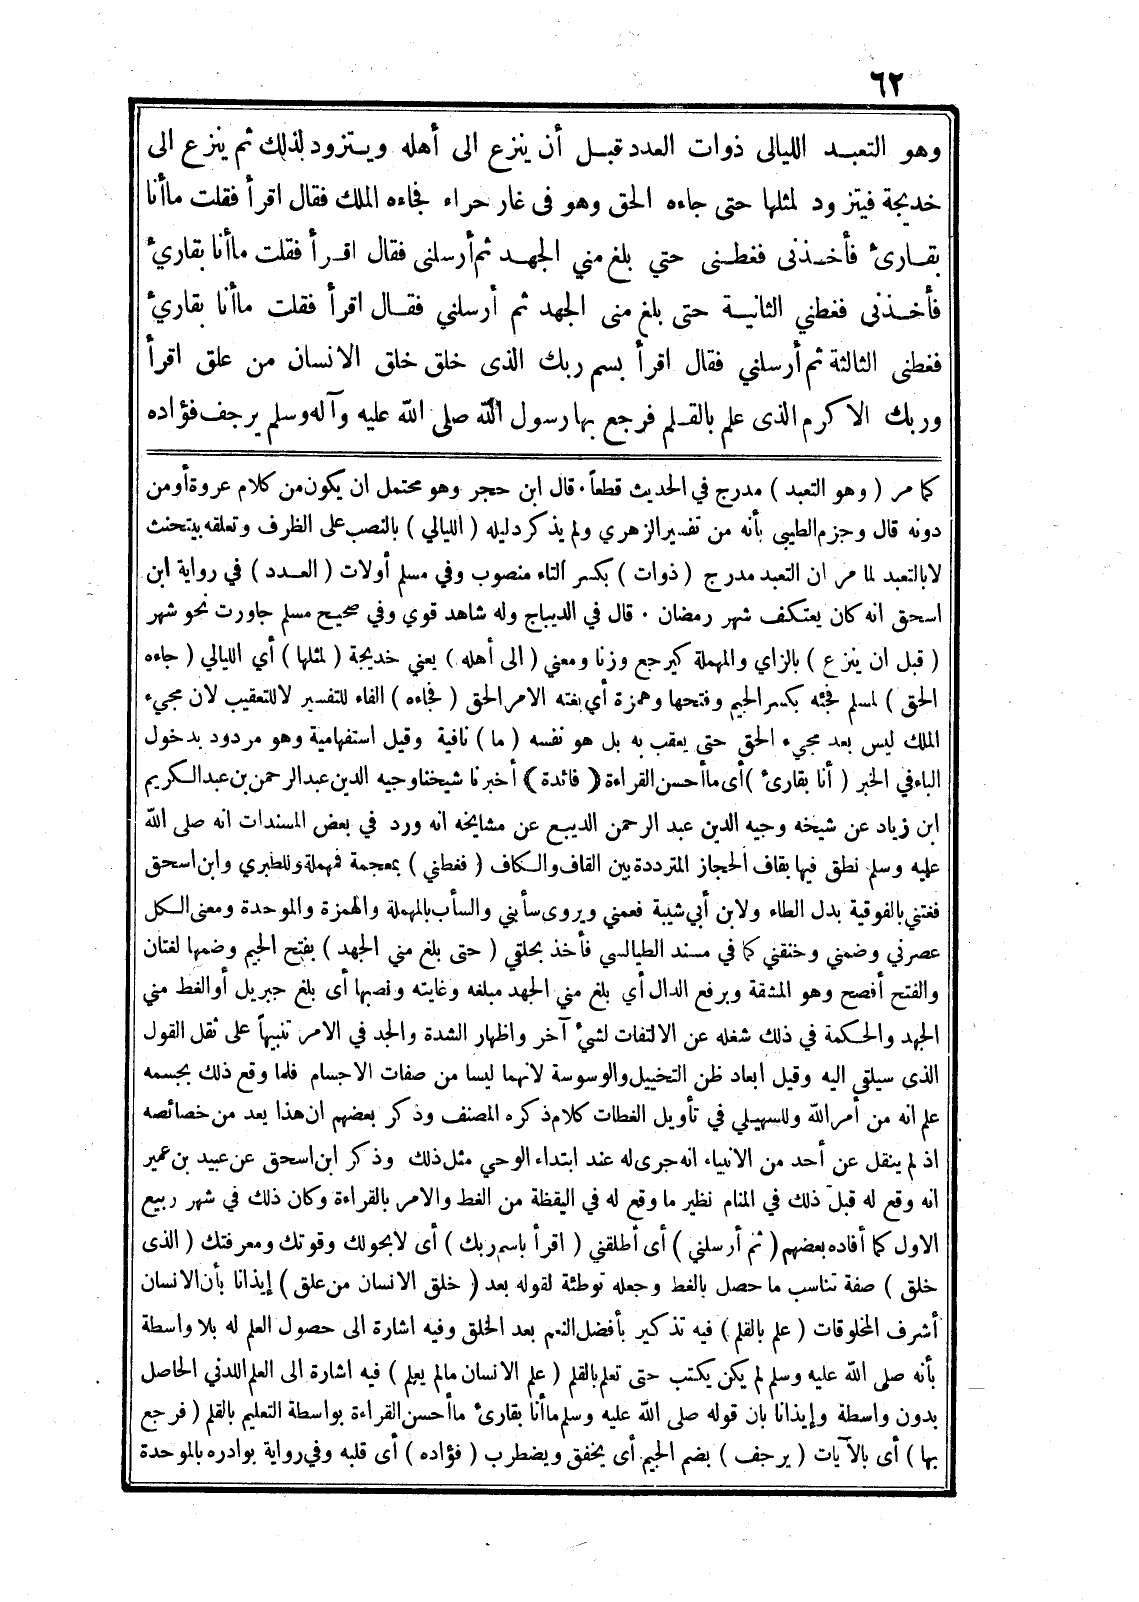 ٦٢
وهو التعبد الليالى ذوات العدد قبل أن ينزع الى أهله ويتزود لذلك ثم ينزع الى
خديجة فيتزود لمثلها حتى جاءه الحق وهو فى غار حراء فجاءه الملك فقال اقرأ فقلت ماأنا
بقارئ فأخذنى فغطنى حتي بلغ مني الجهد ثم أرسلنى فقال اقرأ فقلت ماأنا بقاريء
فأخذنى فغطني الثانية حتى بلغ منى الجهد ثم أرسلني فقال اقرأ فقلت ماأنا بقاريء
فغطنى الثالثة ثم أرسلني فقال اقرأ بسم ربك الذى خلق خلق الانسان من علق اقرأ
وربك الاكرم الذى علم بالقلم فرجع بها رسول الله صلى الله عليه وآله وسلم يرجف فؤاده
كما مر ( وهو التعبد ) مدرج في الحديث قطعاً . قال ابن حجر وهو محتمل ان يكون من كلام عروة أومن
دونه قال وجزم الطيبي بأنه من تفسير الزهري ولم يذكر دليله ( الليالي ) بالنصب على الظرف وتعلقه بيتحنث
لابالتعبد لما مر ان التعبد مدرج ( ذوات ) بكسر التاء منصوب وفي مسلم أولات ( العدد ) في رواية ابن
اسحق انه كان يعتكف شهر رمضان . قال في الديباج وله شاهد قوي وفي صحيح مسلم جاورت نحو شهر
( قبل ان ينزع ) بالزاي والمهملة كيرجع وزنا ومعني ( الى أهله ) يعني خديجة ( لمثلها ) أي الليالي ( جاءه
الحق ) لمسلم فجئه بكسر الجيم وفتحها وهمزة أي بغته الامر الحق ( فجاءه ) الفاء للتفسير لاللتعقيب لان مجيء
الملك ليس بعد مجيء الحق حتى يعقب به بل هو نفسه ( ما ) نافية وقيل استفهامية وهو مردود بدخول
الباء في الخبر ( أنا بقارئ ) أى ماأحسن القراءة ( فائدة ) أخبرنا شيخنا وجيه الدين عبد الرحمن بن عبد الكريم
ابن زياد عن شيخه وجيه الدين عبد الرحمن الديبع عن مشايخه انه ورد في بعض المسندات انه صلى الله
عليه وسلم نطق فيها بقاف الحجاز المترددة بين القاف والكاف ( فغطني ) بمعجمة فمهملة وللطبري وابن اسحق
فغتني بالفوقية بدل الطاء ولابن أبي شيبة فغمني ويروى سأبني والسأب بالمهملة والهمزة والموحدة ومعنى الكل
عصرني وضمني وخنقني كما في مسند الطيالسي فأخذ بحلقي ( حتى بلغ مني الجهد ) بفتح الجيم وضمها لغتان
والفتح أفصح وهو المشقة وبرفع الدال أي بلغ مني الجهد مبلغه وغايته ونصبها أى بلغ جبريل أوالغط مني
الجهد والحكمة في ذلك شغله عن الالتفات لشئ آخر واظهار الشدة والجد في الامر تنبيهاً على ثقل القول
الذي سيلقى اليه وقيل ابعاد ظن التخييل والوسوسة لانهما ليسا من صفات الاجسام فلما وقع ذلك بجسمه
علم انه من أمر الله وللسهيلي في تأويل الغطات كلام ذكره المصنف وذكر بعضهم ان هذا يعد من خصائصه
اذ لم ينقل عن أحد من الانبياء انه جرى له عند ابتداء الوحي مثل ذلك وذكر ابن اسحق عن عبيد بن عمير
انه وقع له قبل ذلك في المنام نظير ما وقع له في اليقظة من الغط والامر بالقراءة وكان ذلك في شهر ربيع
الاول كما أفاده بعضهم ( ثم أرسلني ) أى أطلقني ( اقرأ باسم ربك ) أى لابحولك وقوتك ومعرفتك ( الذى
خلق ) صفة تناسب ما حصل بالغط وجعله توطئة لقوله بعد ( خلق الانسان من علق ) إيذانا بأن الانسان
أشرف المخلوقات ( علم بالقلم ) فيه تذكير بأفضل النعم بعد الخلق وفيه اشارة الى حصول العلم له بلا واسطة
بأنه صلى الله عليه وسلم لم يكن يكتب حتى تعلم بالقلم ( علم الانسان مالم يعلم ) فيه اشارة الى العلم اللدني الحاصل
بدون واسطة وإيذانا بان قوله صلى الله عليه وسلم ماأنا بقارئ ماأحسن القراءة بواسطة التعليم بالقلم ( فرجع
بها ) أى بالآيات ( يرجف ) بضم الجيم أى يخفق ويضطرب ( فؤاده ) أى قلبه وفي رواية بوادره بالموحدة